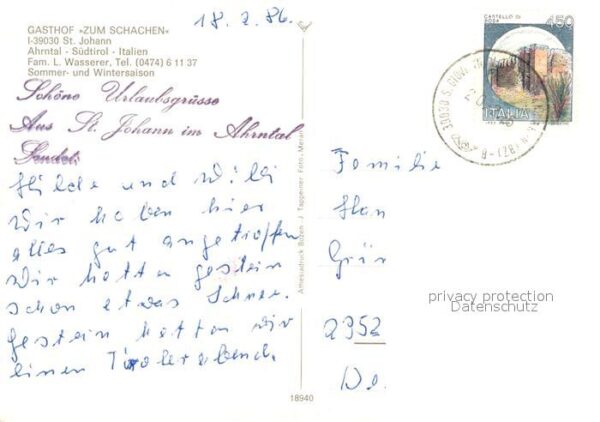 18. 2. 86.
GASTHOF »ZUM SCHACHEN«
I-39030 St. Johann
Ahrntal - Südtirol - Italien
Fam. L. Wasserer, Tel. (0474) 6 11 37
Sommer- und Wintersaison
Schöne Urlaubsgrüsse
Aus St. Johann im Ahrntal
Sendet:
Hilde und Willi
Wir haben hier
alles gut angetroffen
Wir hatten gestern
schon etwas Schnee.
gestern hatten wir
einen Tirolerabend.
Athesiadruck Bozen - J. Tappeiner Foto, Meran
18940
CASTELLO DI
450
ITALIA
39030 S. GIOV
(BZ)
Familie
Han
Grün
2352
privacy protection
Datenschutz